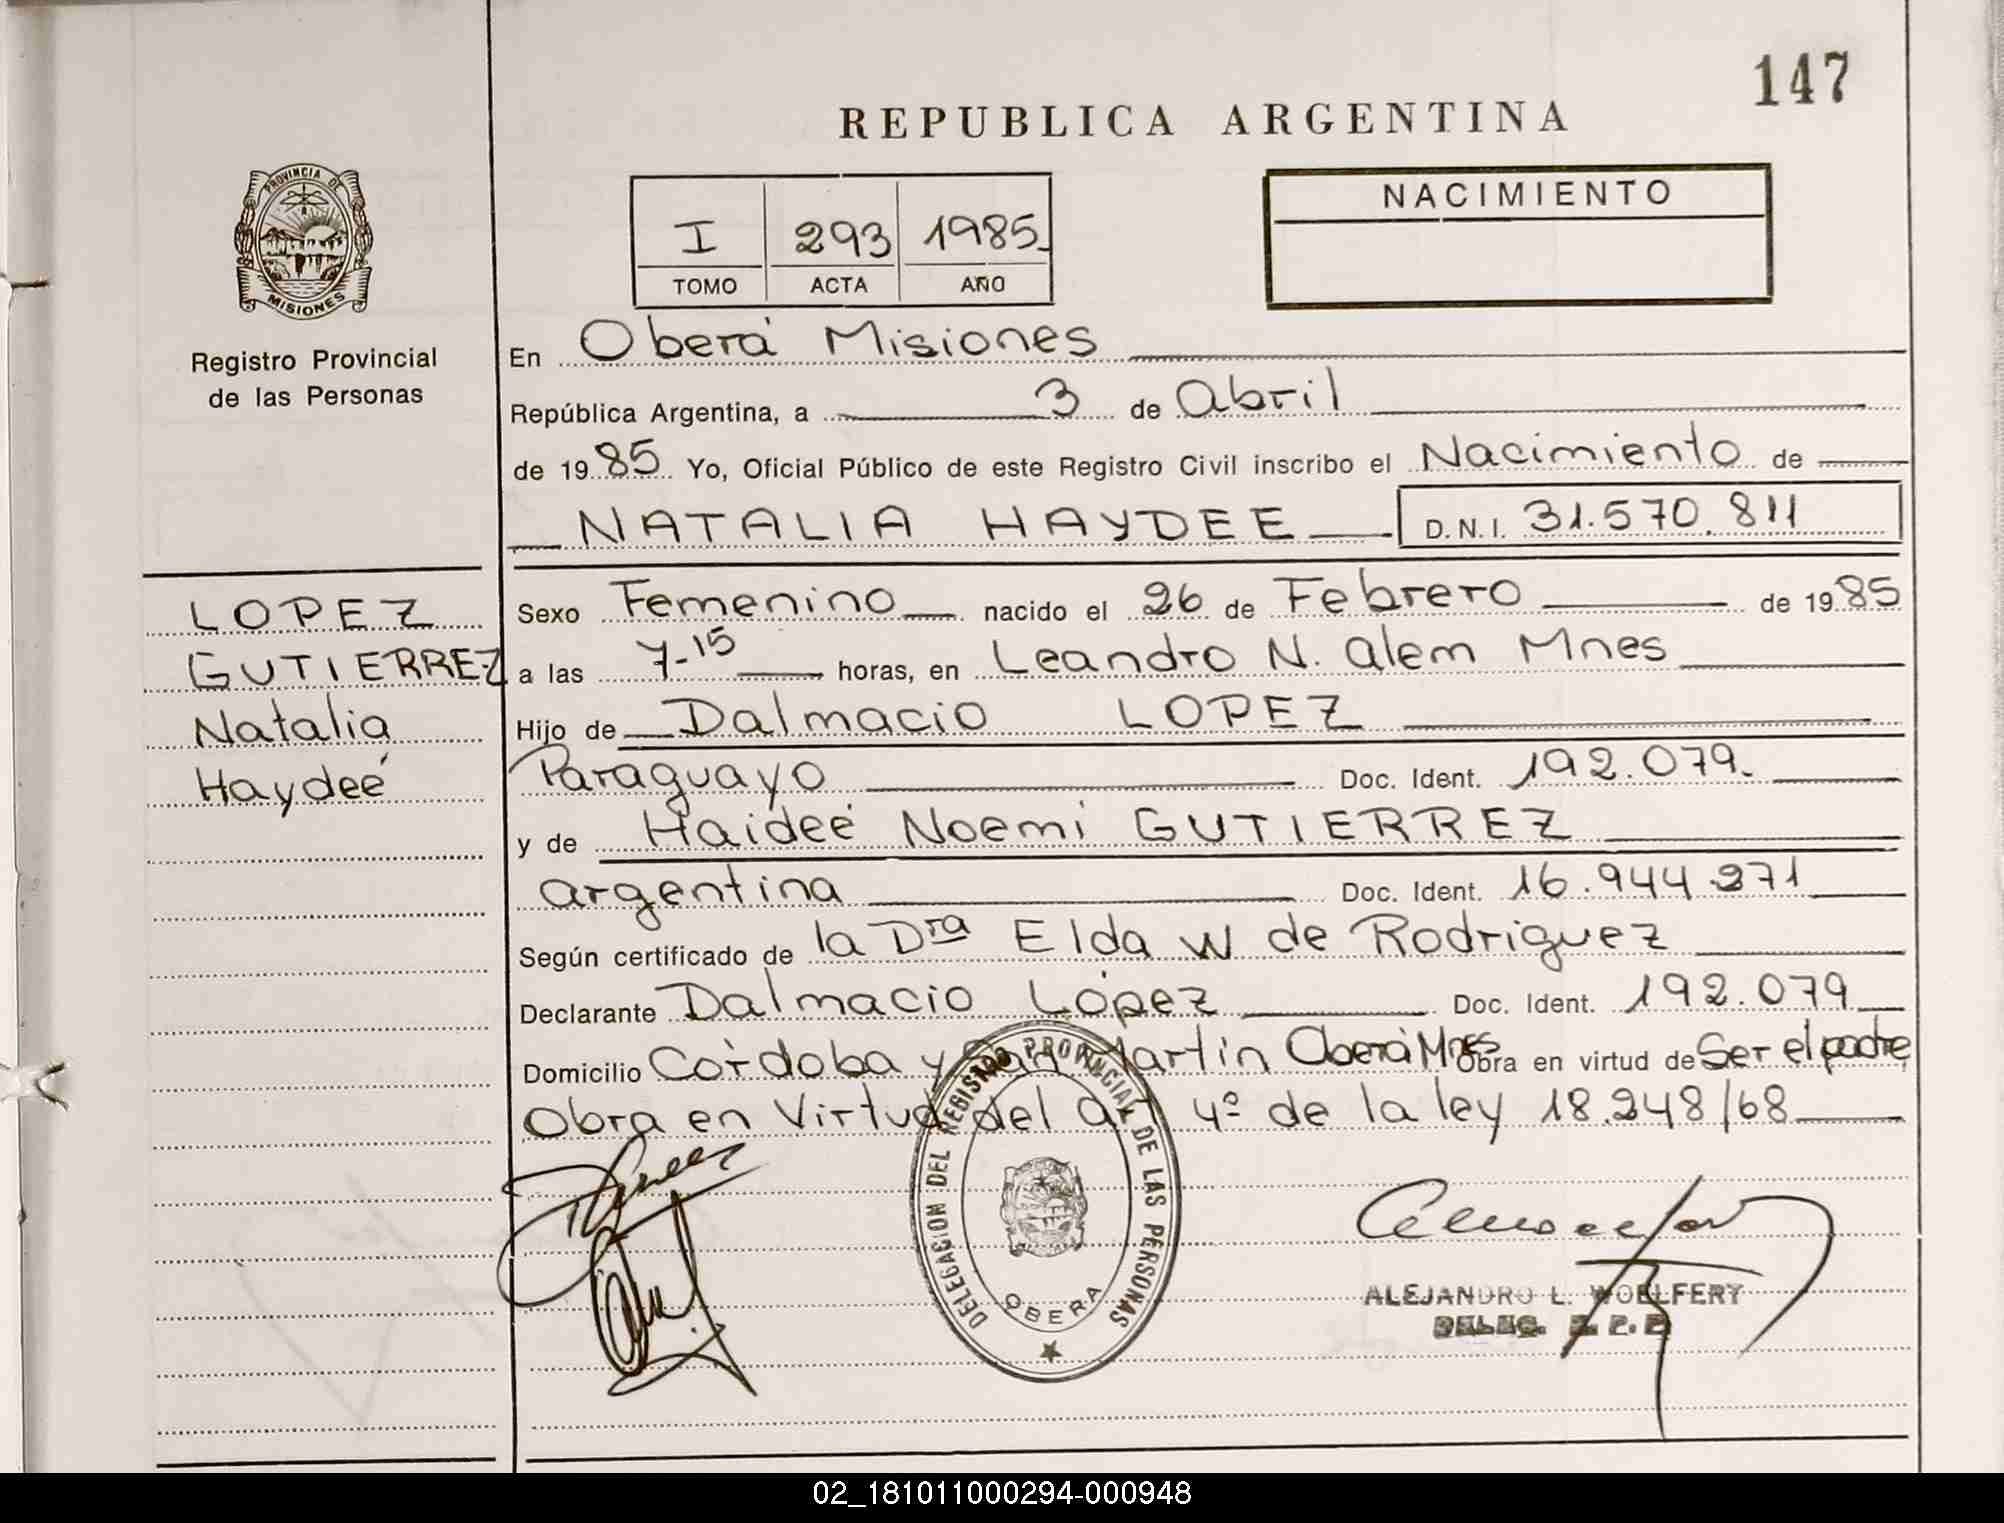 147
REPUBLICA ARGENTINA
PROVINCIA DE
MISIONES
Registro Provincial
de las Personas
I 293 1985
TOMO ACTA AÑO
NACIMIENTO
En Oberá Misiones
República Argentina, a 3 de Abril
de 1985 Yo, Oficial Público de este Registro Civil inscribo el Nacimiento de
NATALIA HAYDEE D.N.I. 31.570.811
LOPEZ
GUTIERREZ
Natalia
Haydeé
Sexo Femenino nacido el 26 de Febrero de 1985
a las 7-15 horas, en Leandro N. Alem Mnes
Hijo de Dalmacio LOPEZ
Paraguayo Doc. Ident. 192.079.
y de Haideé Noemi GUTIERREZ
argentina Doc. Ident. 16.944.271
Según certificado de la Dra Elda W de Rodriguez
Declarante Dalmacio López Doc. Ident. 192.079
Domicilio Córdoba y San Martín Oberá Mnes Obra en virtud de Ser el padre
Obra en Virtud del Art 4º de la ley 18.248/68
DELEGACION DEL REGISTRO PROVINCIAL DE LAS PERSONAS
OBERA
ALEJANDRO L. WOELFERY
02_181011000294-000948